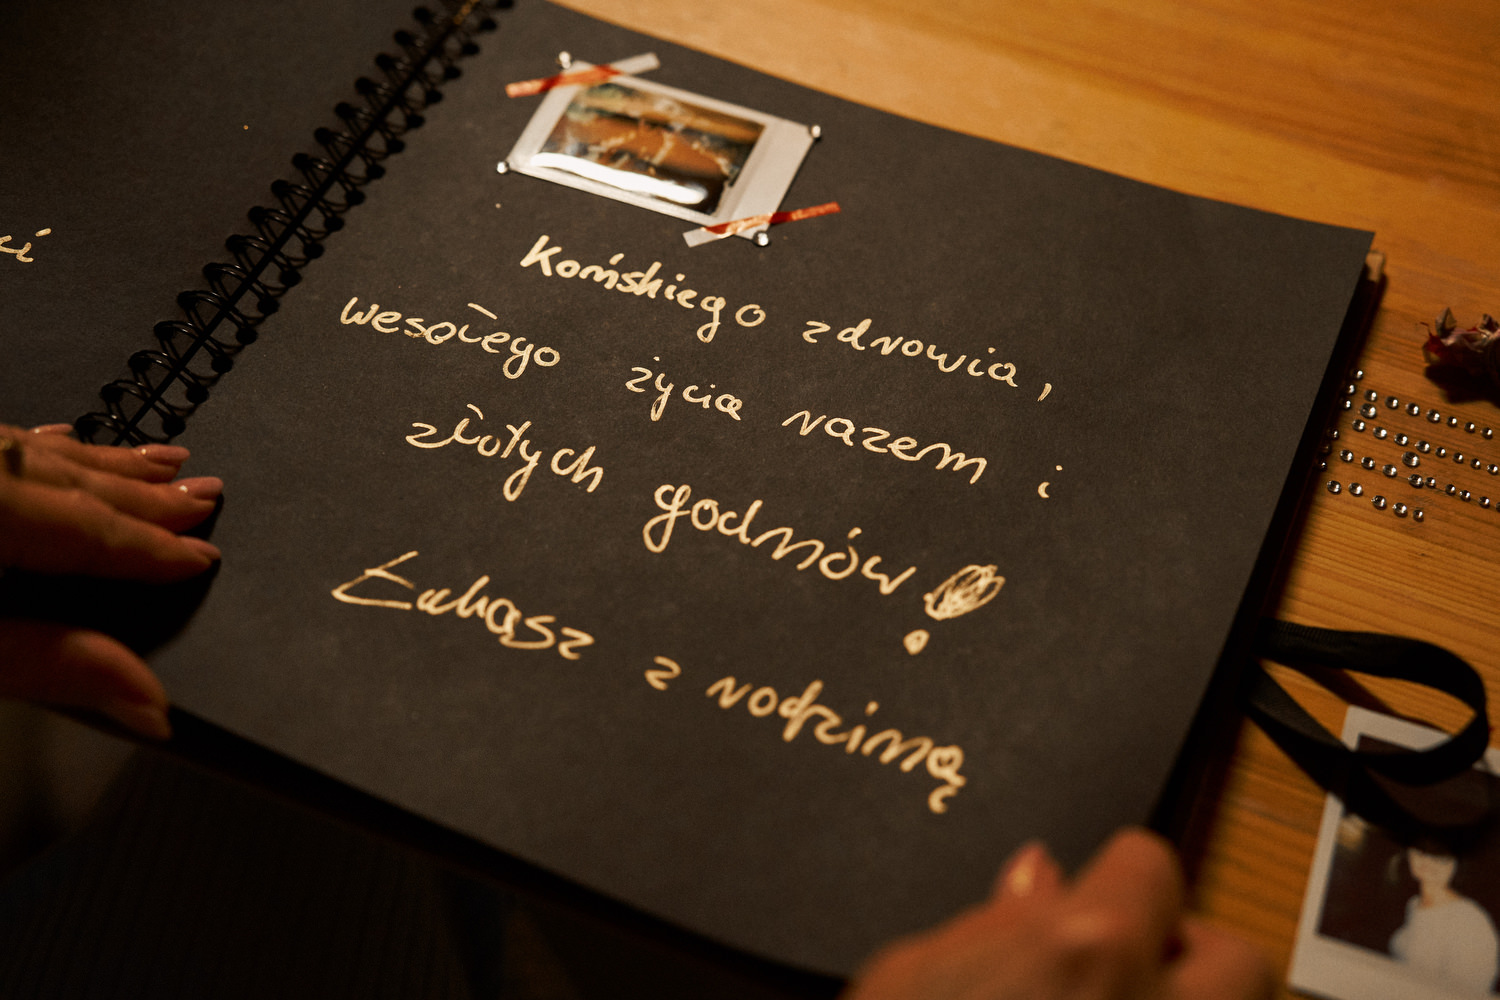 Końskiego zdrowia,
wesołego życia razem i
złotych godnów!
Łukasz z rodziną